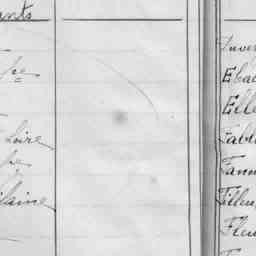 ants
pe
Loire
pe
ilaine
Inver
Ebac
Elle
Fabl
Fann
Filleu
Fleu